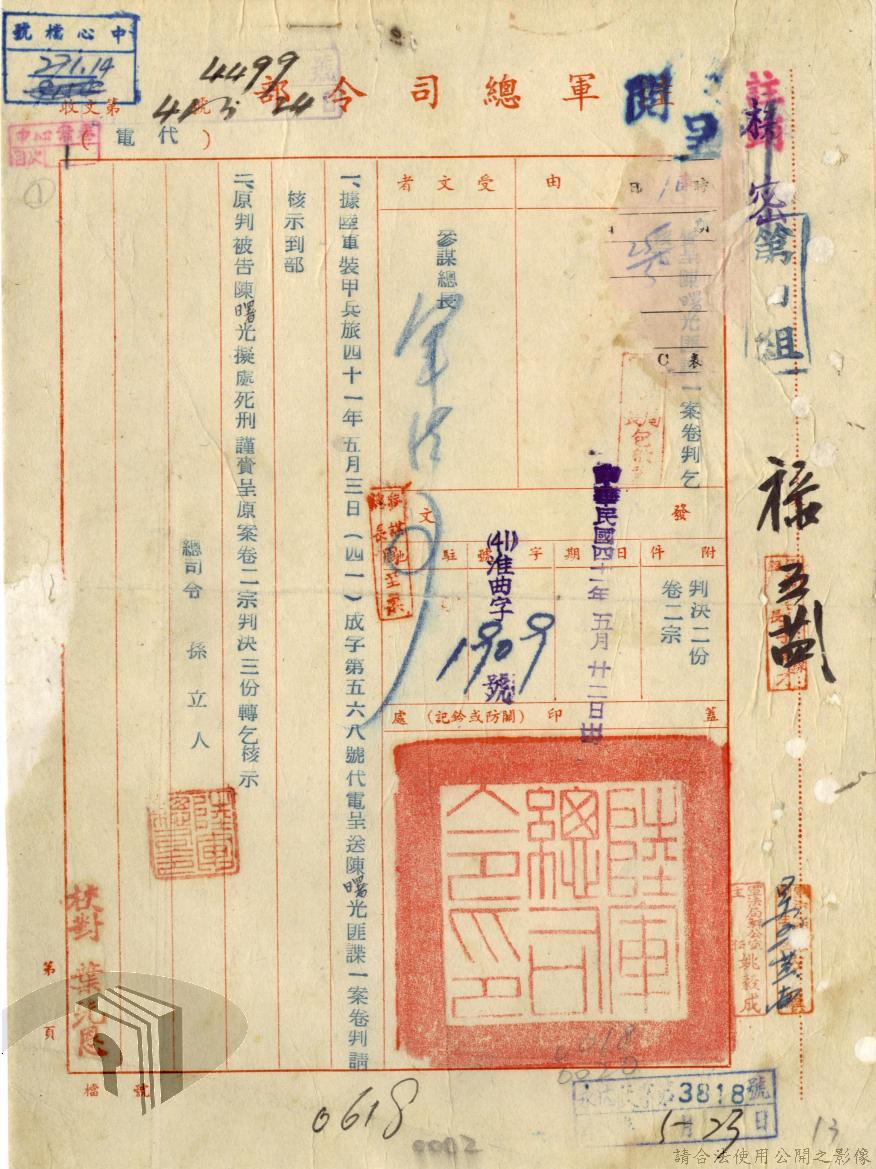 中心檔號
271.14
收文第 號
4499
陸軍總司令部
(代電)
註
密
第 組
呈
閱
事由
為呈陳曙光匪諜一案卷判乞
受文者
參謀總長
附件
判決二份
卷二宗
發文
日期
中華民國四十一年五月廿二日
字號
(41)淮曲字
1909
號
駐地
蓋印(關防或鈐記)處
陸軍總司令部印
一、據陸軍裝甲兵旅四十一年五月三日(四一)成字第五六八號代電呈送陳曙光匪諜一案卷判請
核示到部
二、原判被告陳曙光擬處死刑謹賚呈原案卷二宗判決三份轉乞核示
總司令 孫立人
校對
第 頁
檔 號
姚毅成
3818號
5月23日
0618
0002
13
請合法使用公開之影像